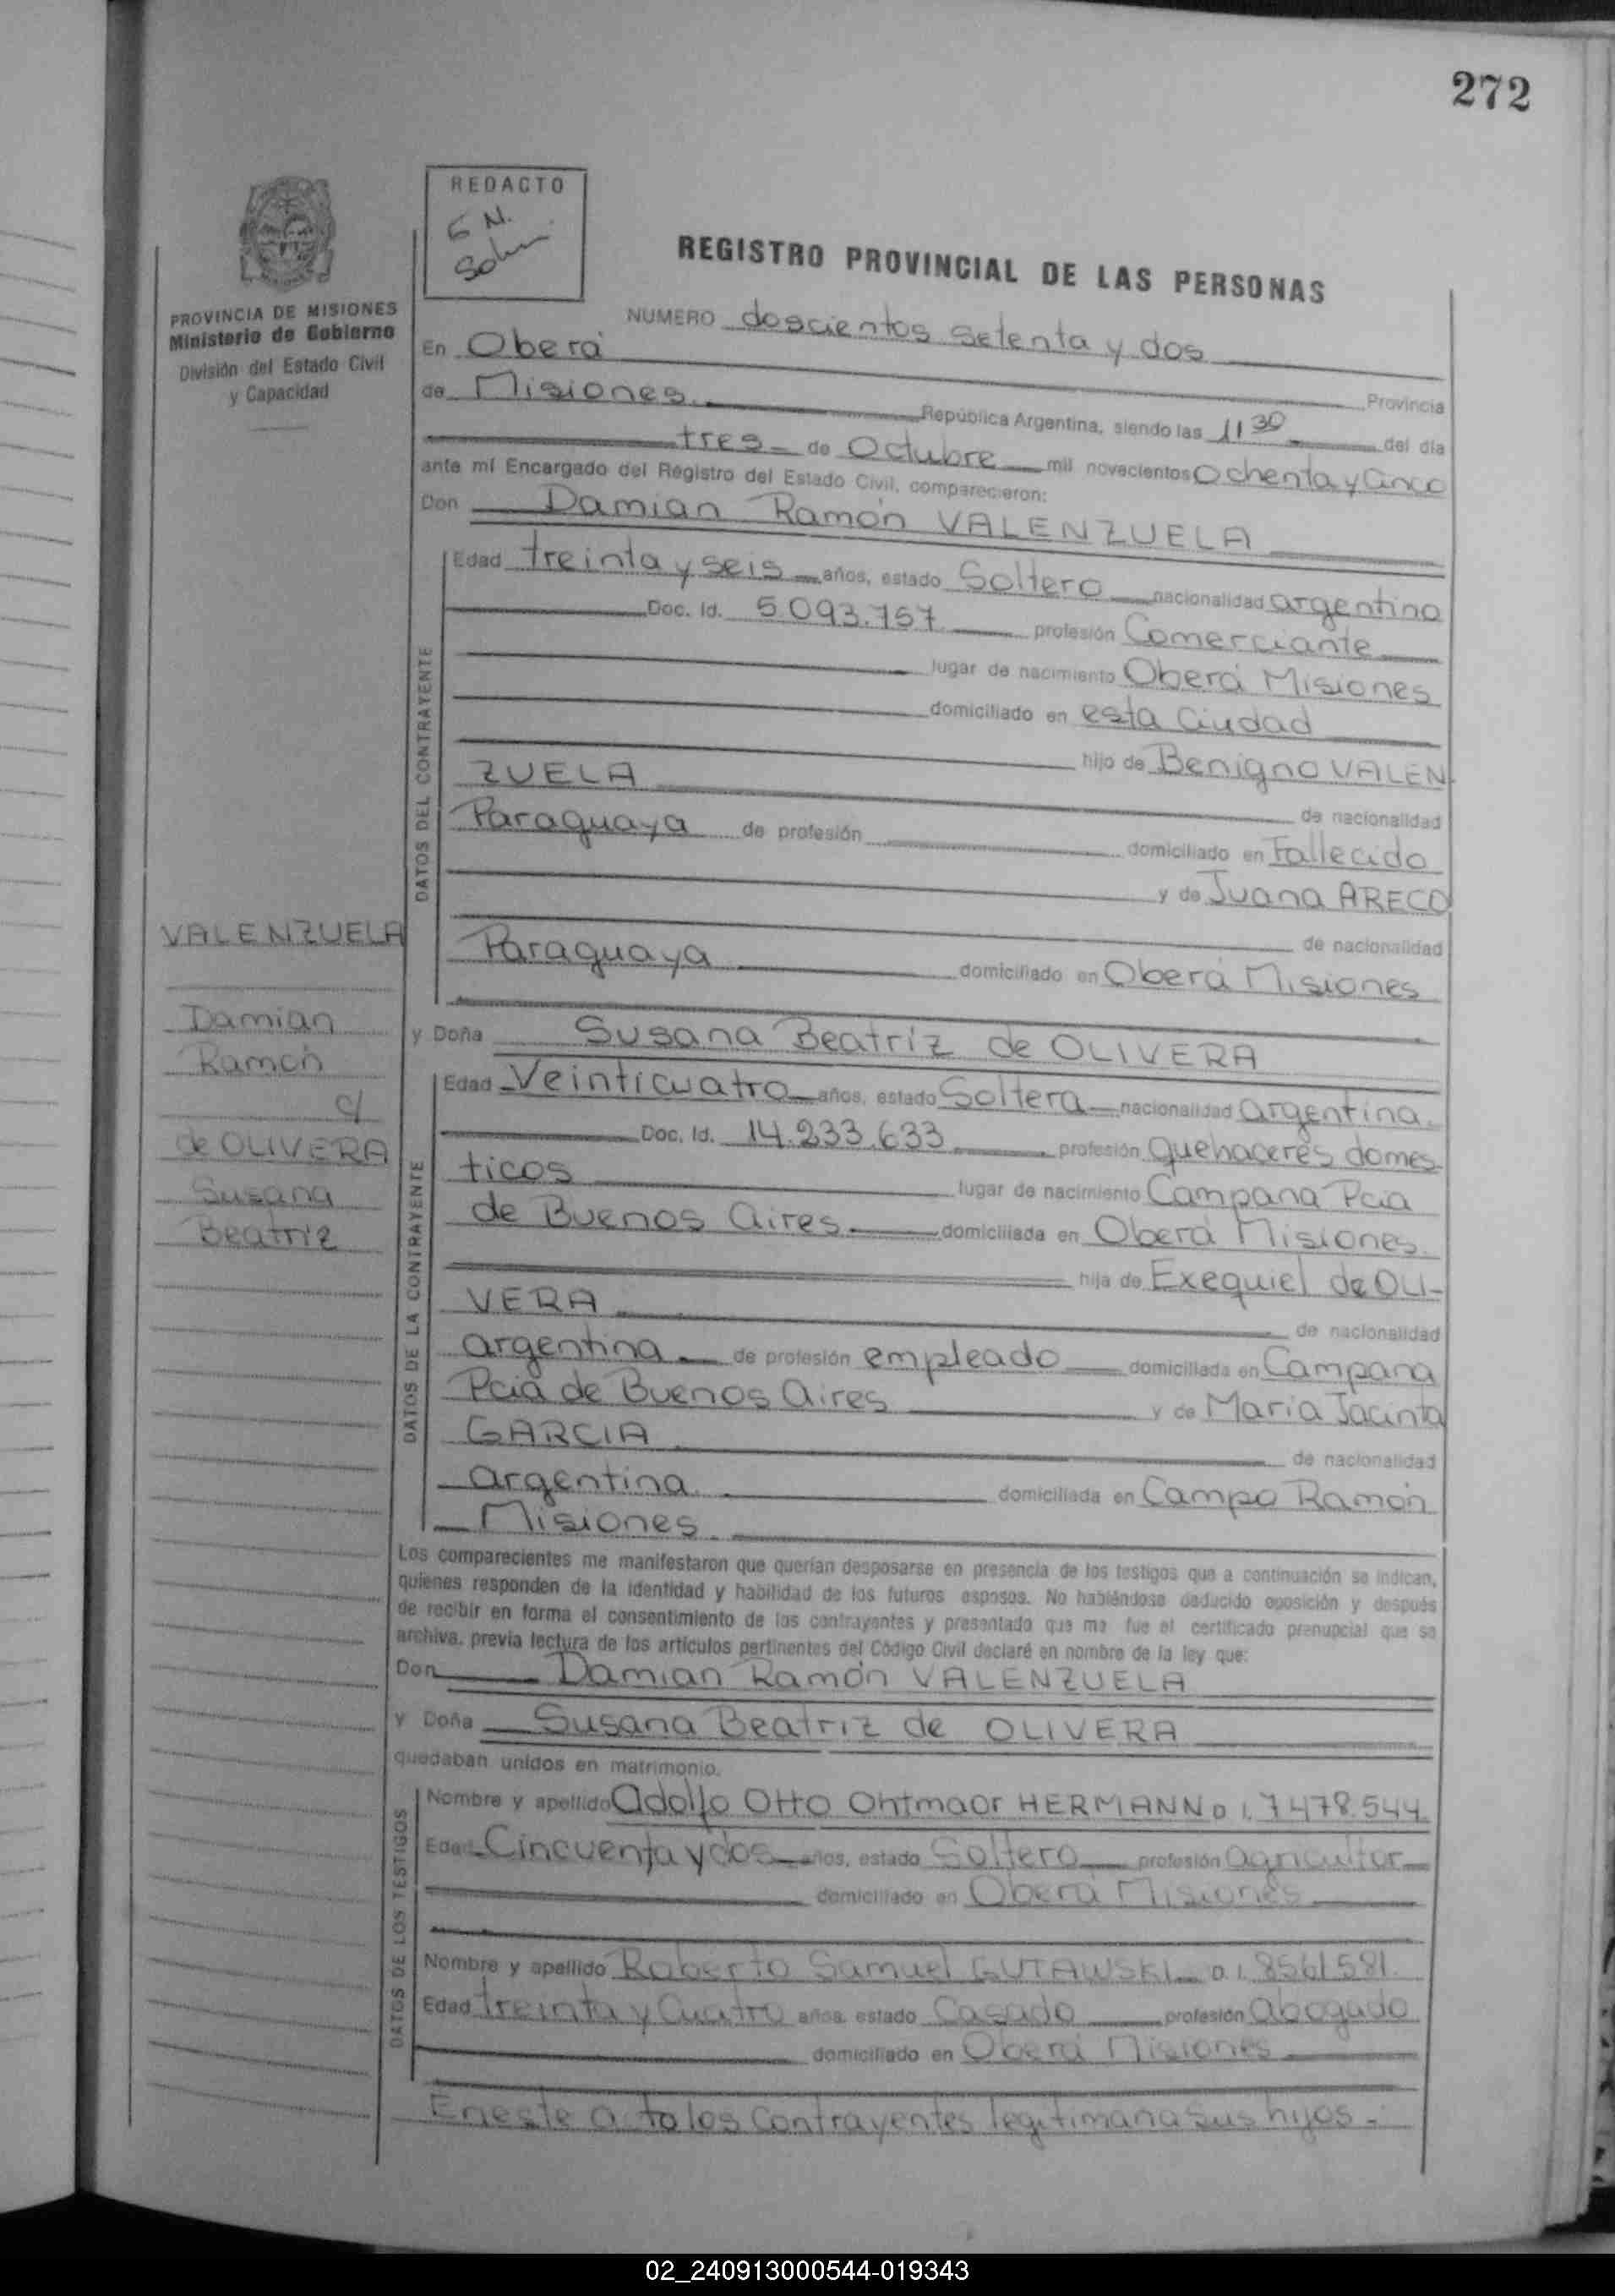 272
REDACTO
G N.
REGISTRO PROVINCIAL DE LAS PERSONAS
PROVINCIA DE MISIONES
Ministerio de Gobierno
División del Estado Civil
y Capacidad
NUMERO doscientos setenta y dos
En Oberá Provincia
de Misiones República Argentina, siendo las 11 30 del día
tres de Octubre mil novecientos Ochenta y Cinco
ante mí Encargado del Registro del Estado Civil, comparecieron:
Don Damian Ramón VALENZUELA
DATOS DEL CONTRAYENTE
Edad treinta y seis años, estado Soltero nacionalidad argentino
Doc. Id. 5.093.757 profesión Comerciante
lugar de nacimiento Oberá Misiones
domiciliado en esta Ciudad
hijo de Benigno VALEN
ZUELA de nacionalidad
Paraguaya de profesión domiciliado en Fallecido
y de Juana ARECO
de nacionalidad
Paraguaya domiciliado en Oberá Misiones
VALENZUELA
Damian
Ramón
c/
de OLIVERA
Susana
Beatriz
y Doña Susana Beatriz de OLIVERA
DATOS DE LA CONTRAYENTE
Edad Veinticuatro años, estado Soltera nacionalidad argentina.
Doc. Id. 14.233.633 profesión Quehaceres domes
ticos lugar de nacimiento Campana Pcia
de Buenos Aires. domiciliada en Oberá Misiones.
hija de Exequiel de OLI-
VERA de nacionalidad
argentina de profesión empleado domiciliada en Campana
Pcia de Buenos Aires y de Maria Jacinta
GARCIA de nacionalidad
argentina. domiciliada en Campo Ramón
Misiones.
Los comparecientes me manifestaron que querían desposarse en presencia de los testigos que a continuación se indican,
quienes responden de la identidad y habilidad de los futuros esposos. No habiéndose deducido oposición y después
de recibir en forma el consentimiento de los contrayentes y presentado que me fue el certificado prenupcial que se
archiva, previa lectura de los artículos pertinentes del Código Civil declaré en nombre de la ley que:
Don Damian Ramón VALENZUELA
y Doña Susana Beatriz de OLIVERA
quedaban unidos en matrimonio.
DATOS DE LOS TESTIGOS
Nombre y apellido Adolfo Otto Ohtmaor HERMANN D.I. 7.478.544.
Edad Cincuenta y dos años, estado Soltero profesión agricultor
domiciliado en Oberá Misiones
Nombre y apellido Roberto Samuel GUTAWSKI D.I. 8561581.
Edad treinta y Cuatro años, estado Casado profesión abogado
domiciliado en Oberá Misiones
En este acto los Contrayentes legitiman a sus hijos.-
02_240913000544-019343